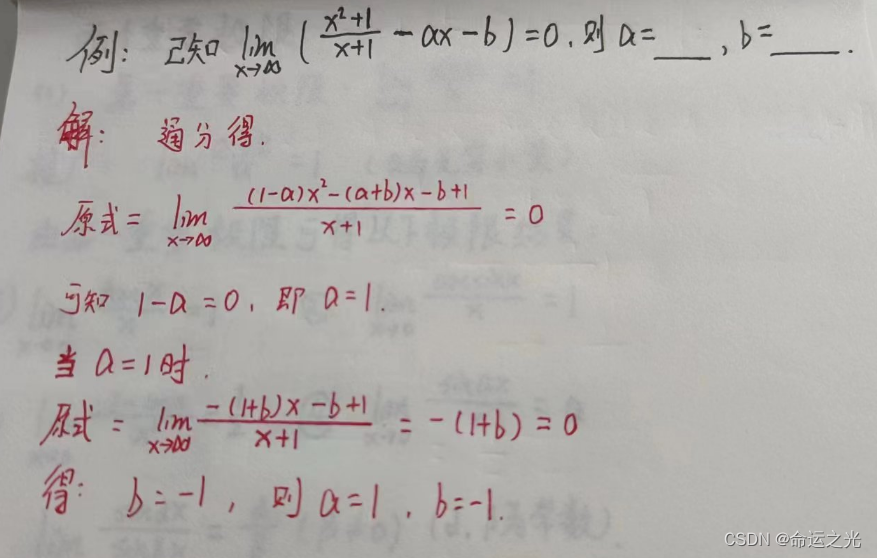 例: 已知 lim x→∞ (x²+1/x+1 - ax - b) = 0. 则 a=___, b=____.
解: 通分得.
原式 = lim x→∞ (1-a)x²-(a+b)x-b+1/x+1 = 0
可知 1-a=0. 即 a=1.
当 a=1时.
原式 = lim x→∞ -(1+b)x-b+1/x+1 = -(1+b) = 0
得: b=-1, 则 a=1. b=-1.
CSDN @命运之光